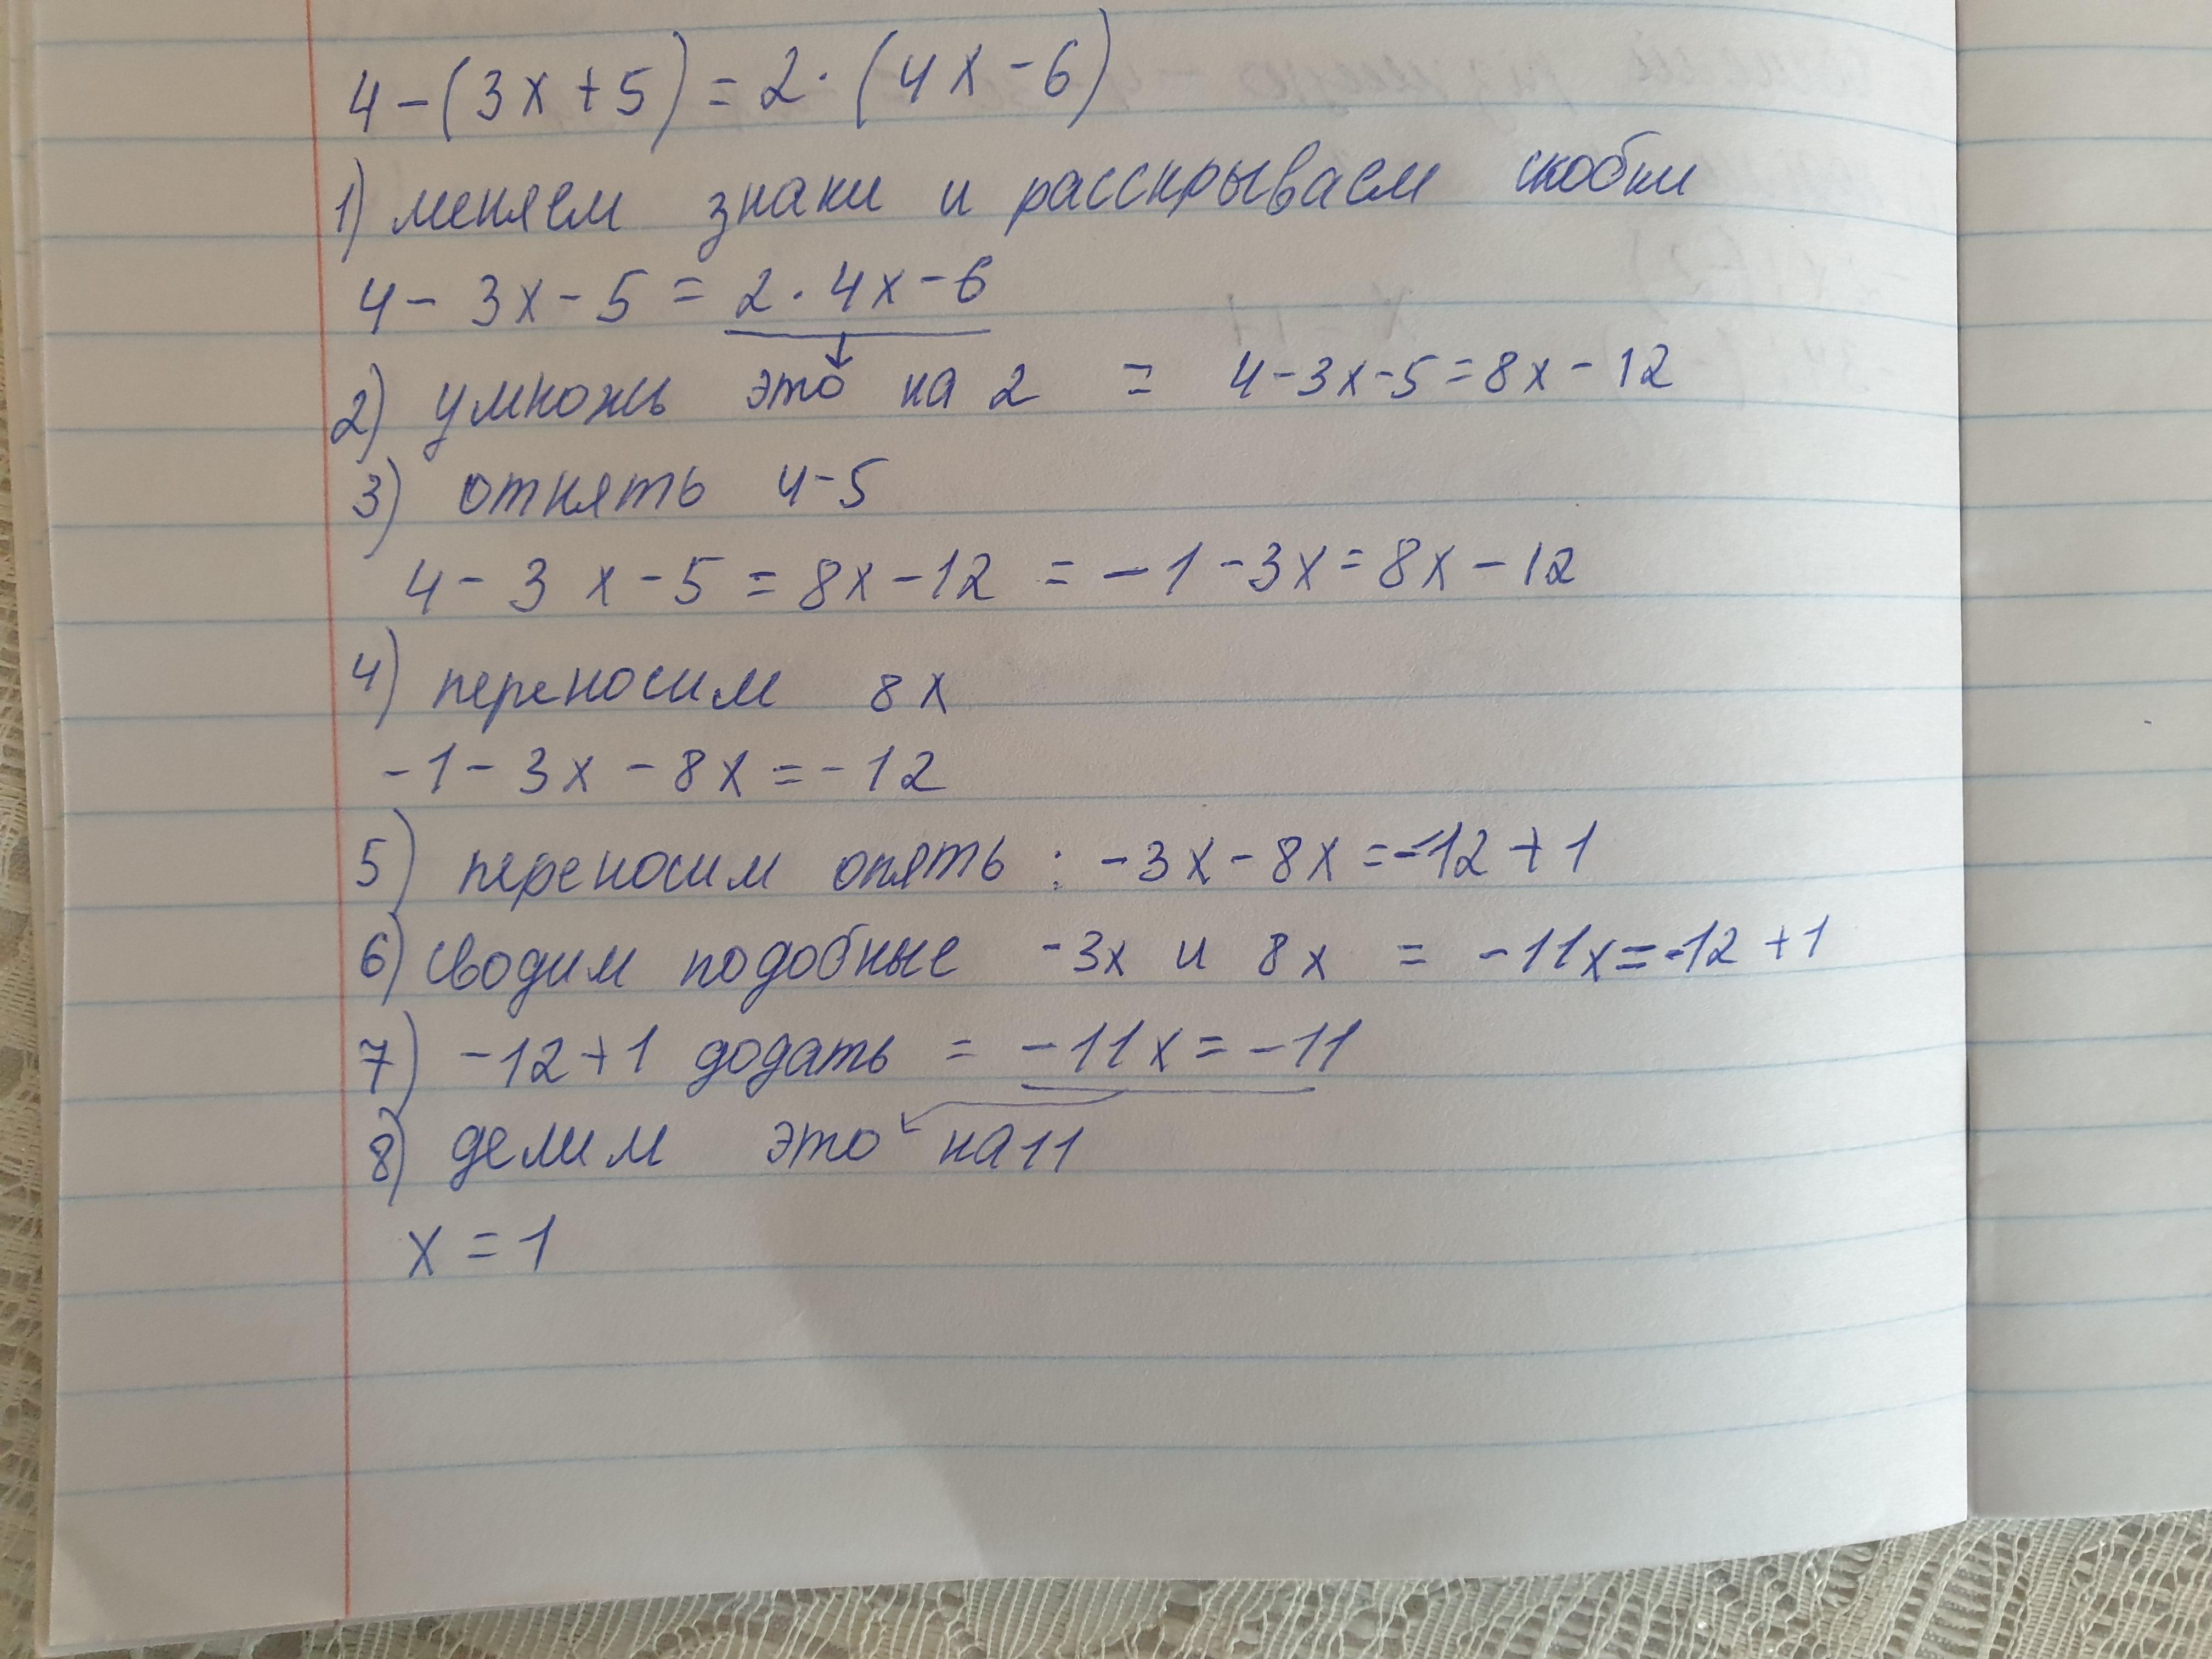 4-(3x+5)=2·(4x-6)
1) меняем знаки и расскрываем скобки
4-3x-5=2·4x-6
2) умножь это на 2 = 4-3x-5=8x-12
3) отнять 4-5
4-3x-5=8x-12 = -1-3x=8x-12
4) переносим 8x
-1-3x-8x=-12
5) переносим опять: -3x-8x=-12+1
6) сводим подобные -3x и 8x = -11x=-12+1
7) -12+1 додать = -11x=-11
8) делим это на 11
x=1